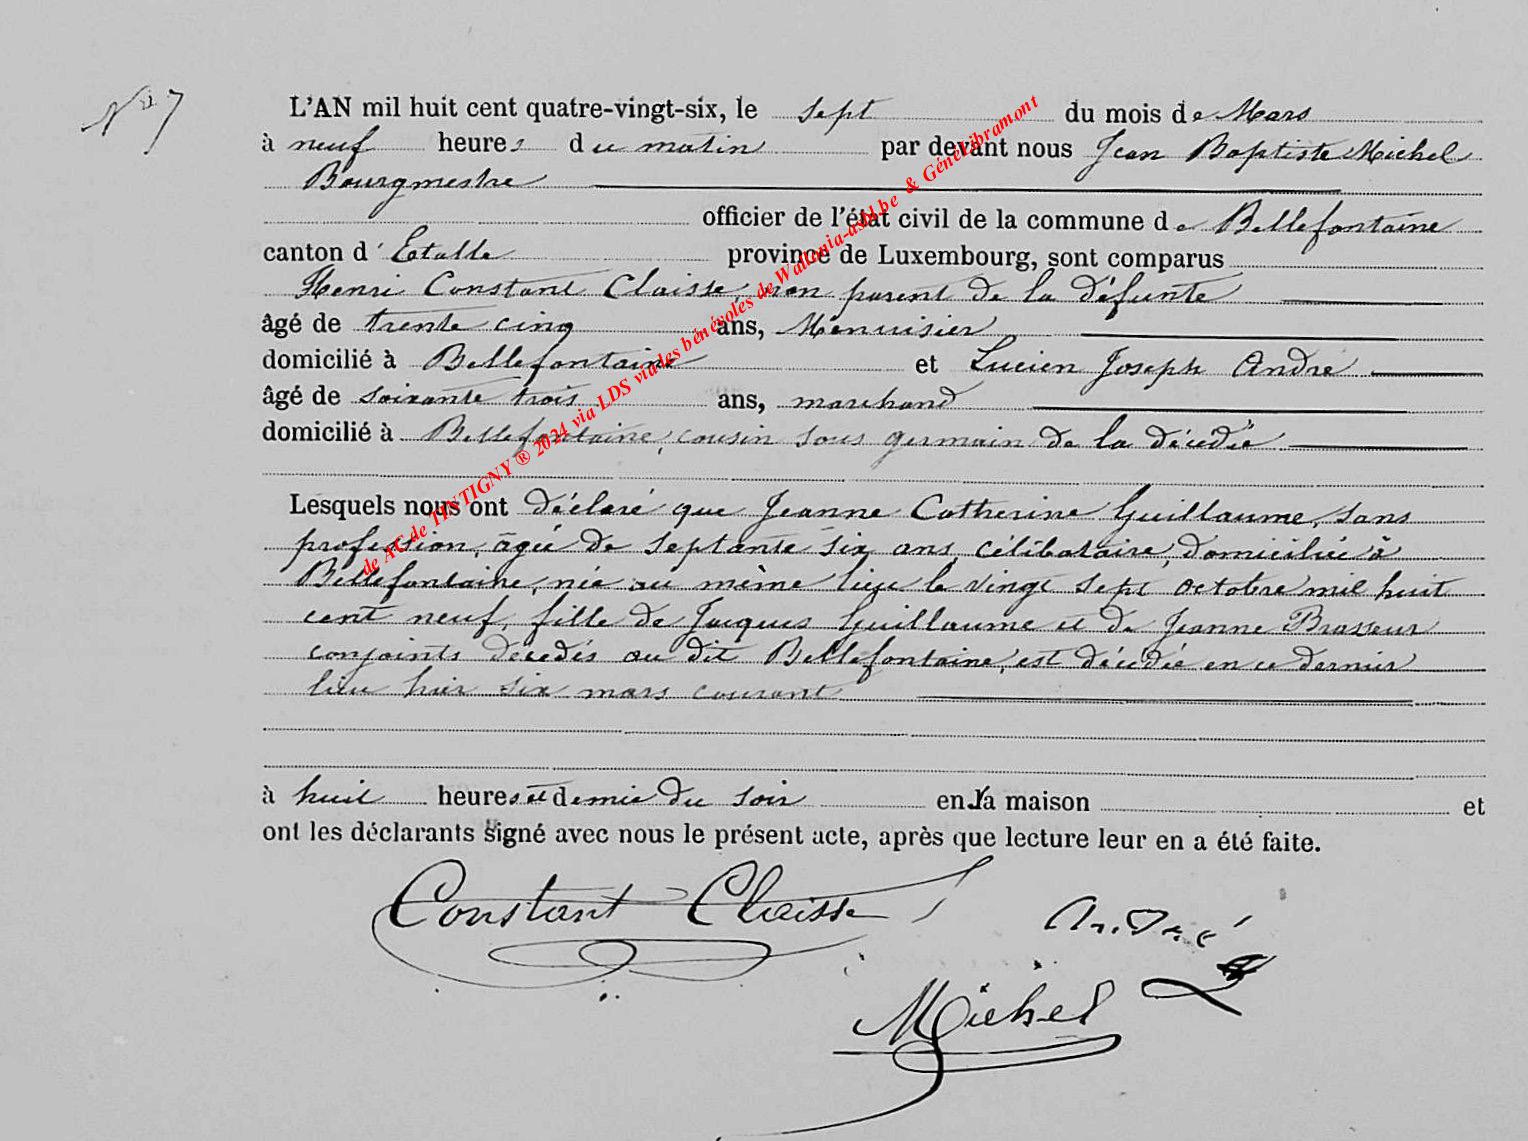 N° 7
L'AN mil huit cent quatre-vingt-six, le sept du mois de Mars
à neuf heures du matin par devant nous Jean Baptiste Michel
Bourgmestre
officier de l'état civil de la commune de Bellefontaine
canton d'Etalle province de Luxembourg, sont comparus
Henri Constant Claisse, non parent de la défunte
âgé de trente cinq ans, Menuisier
domicilié à Bellefontaine et Lucien Joseph André
âgé de soixante trois ans, marchand
domicilié à Bellefontaine, cousin sous germain de la décédée
Lesquels nous ont déclaré que Jeanne Catherine Guillaume, sans
profession, âgée de septante six ans, célibataire, domiciliée à
Bellefontaine, née au même lieu le vingt sept octobre mil huit
cent neuf, fille de Jacques Guillaume et de Jeanne Brasseur
conjoints décédés au dit Bellefontaine, est décédée en ce dernier
lieu hier six mars courant
à huit heures et demie du soir en la maison et
ont les déclarants signé avec nous le présent acte, après que lecture leur en a été faite.
Constant Claisse André
Michel
de AC de TINTIGNY ® 2024 via LDS via les bénévoles de Wallonia-asbl.be & GénéLibramont